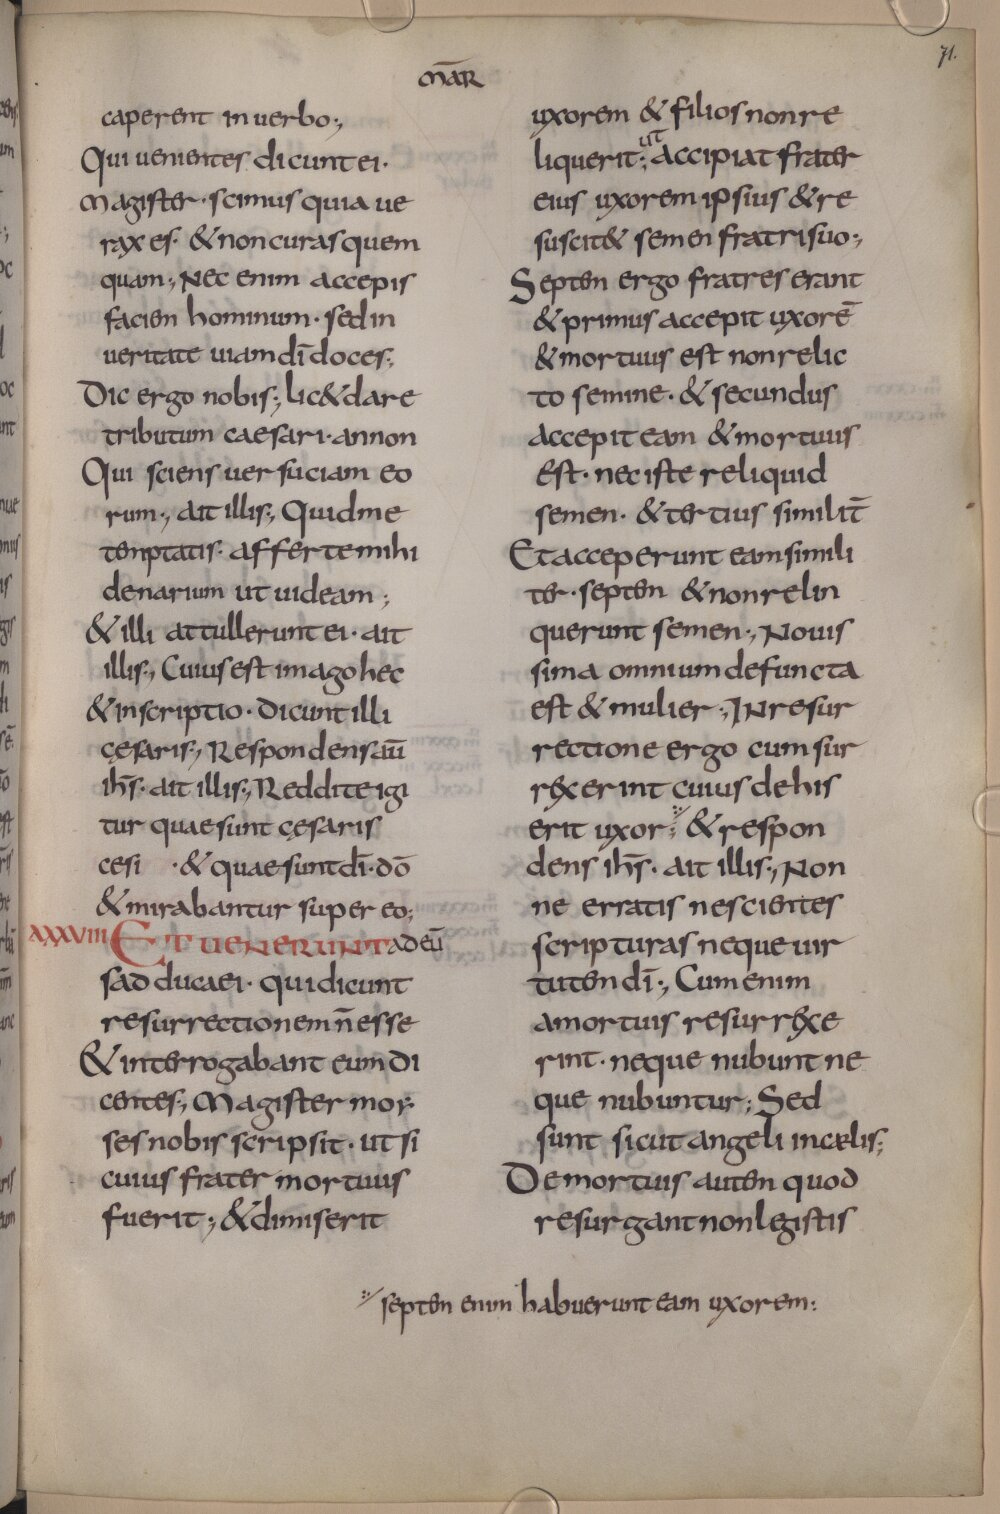 71.
MAR̄
caperent in uerbo;,
Qui uenientes dicunt ei·
magister· scimus quia ue
rax es· & non curas quem
quam;, Nec enim accepis
faciem hominum· sed in
ueritate uiam dī doces;,
Dic ergo nobis;, lic& dare
tributum caesari· an non
Qui sciens uersuciam eo
rum;, ait illis;, Quid me
temptatis· afferte mihi
denarium ut uideam;
& illi attullerunt ei· ait
illis;, Cuius est imago hec
& inscriptio· dicunt illi
cęsaris;, Respondens aū
ihs̄· ait illis;, Reddite igi
tur quae sunt cęsaris
cesi · & quae sunt dī· dō
& mirabantur super eo;
XXXVIII ET UENERUNT ad eū
sadducaei· qui dicunt
resurrectionem n̄ esse
& interrogabant eum di
centes;, Magister moy
ses nobis scripsit· ut si
cuius frater mortuus
fuerit; & dimiserit
uxorem & filios non re
liquerit; ut accipiat frater
eius uxorem ipsius & re
suscit& semen fratri suo;,
Septem ergo fratres erant
& primus accepit uxorē
& mortuus est non relic
to semine· & secundus
accepit eam & mortuus
est· nec iste reliquid
semen· & tertius similit̄
Et acceperunt eam simili
ter· septem & non relin
querunt semen;, Nouis
sima omnium defuncta
est & mulier;, In resur
rectione ergo cum sur
rexerint cuius de his
erit uxor; & respon
dens ihs̄· ait illis;, Non
ne erratis nescientes
scripturas neque uir
tutem dī;, Cum enim
a mortuis resurrexe
rint· neque nubunt ne
que nubuntur; Sed
sunt sicut angeli in cælis;,
De mortuis autem quod
resurgant non legistis
septem enim habuerunt eam uxorem: